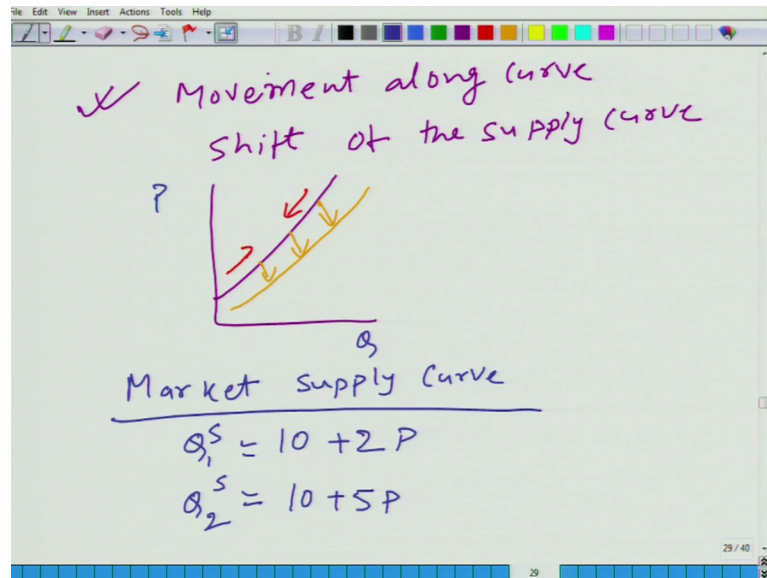 File Edit View Insert Actions Tools Help
B I
Movement along curve
shift of the supply curve
P
Q
Market supply curve
Q₁ˢ = 10 + 2P
Q₂ˢ = 10 + 5P
29 / 40
29